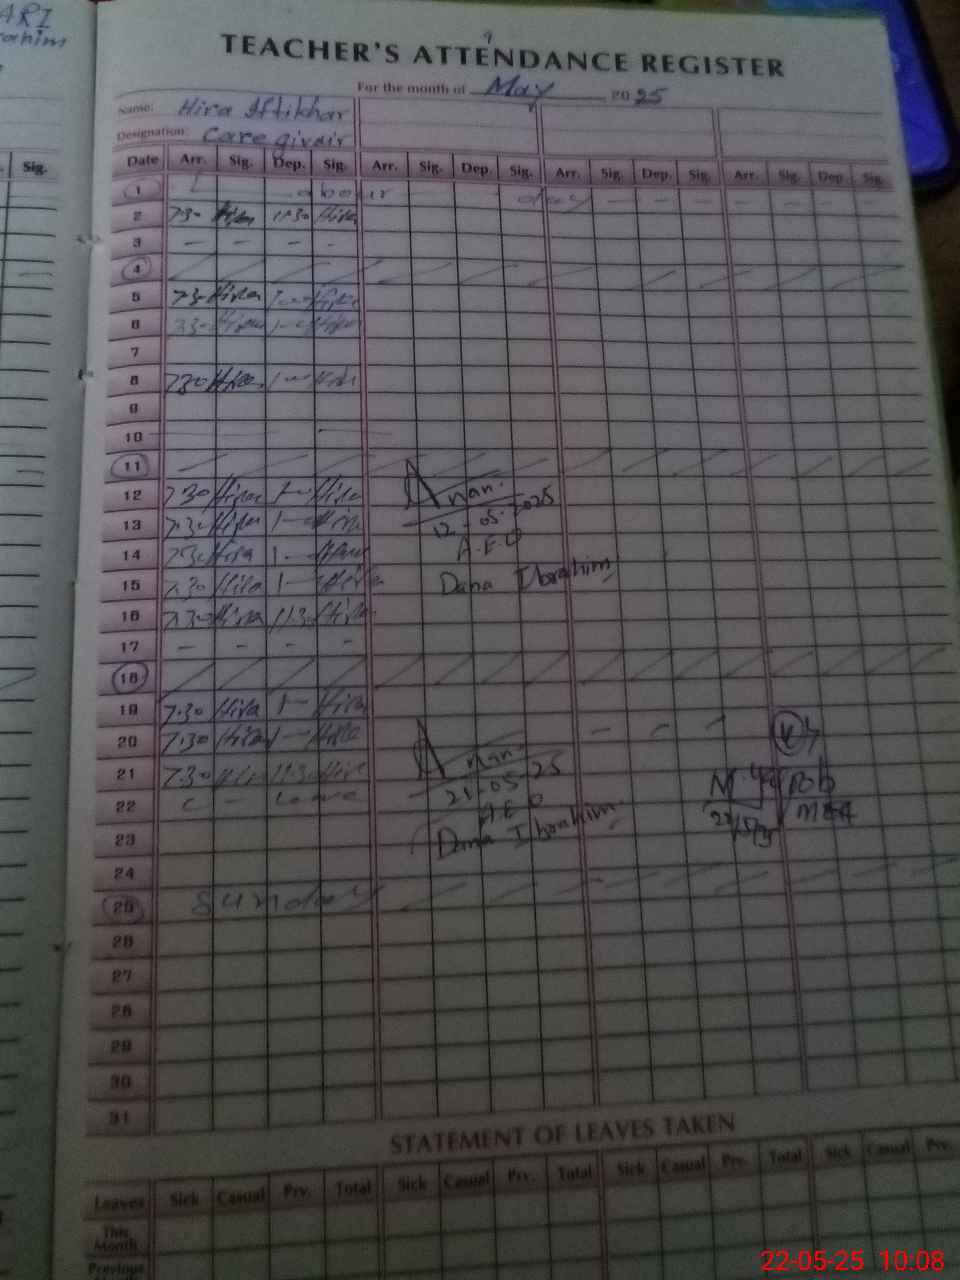 ARI
rahim
TEACHER'S ATTENDANCE REGISTER
For the month of May 2025
Name: Hira Iftikhar
Designation: Care givair
Sig.
Date Arr. Sig. Dep. Sig. Arr. Sig. Dep. Sig. Arr. Sig. Dep. Sig. Arr. Sig. Dep. Sig.
1 Labour day
2 7.30 Hira 11.30 Hira
3 - - - -
4
5 7.3 Hira 1 Hira
6 7.30 Hira 1 Hira
7
8 7.30 Hira 1 Hira
9
10
11
12 7.30 Hira 1 Hira
Anan.
12-05-2025
13 7.30 Hira 1 Hira
A.E.O
14 7.30 Hira 1 Hira
15 7.30 Hira 1 Hira Dana Ibrahim
16 7.30 Hira 11.30 Hira
17 - - - -
18
19 7.30 Hira 1 Hira
20 7.30 Hira 1 Hira
Anan
21 7.30 Hira 11.3 Hira 21-05-25
22 C - Leave
A.E.O
MEA
23 Dana Ibrahim
24
25 Sunday
26
27
28
29
30
31
STATEMENT OF LEAVES TAKEN
Leaves Sick Casual Prv. Total Sick Casual Prv. Total Sick Casual Prv. Total Sick Casual Prv.
This Month
Previous
22-05-25 10:08